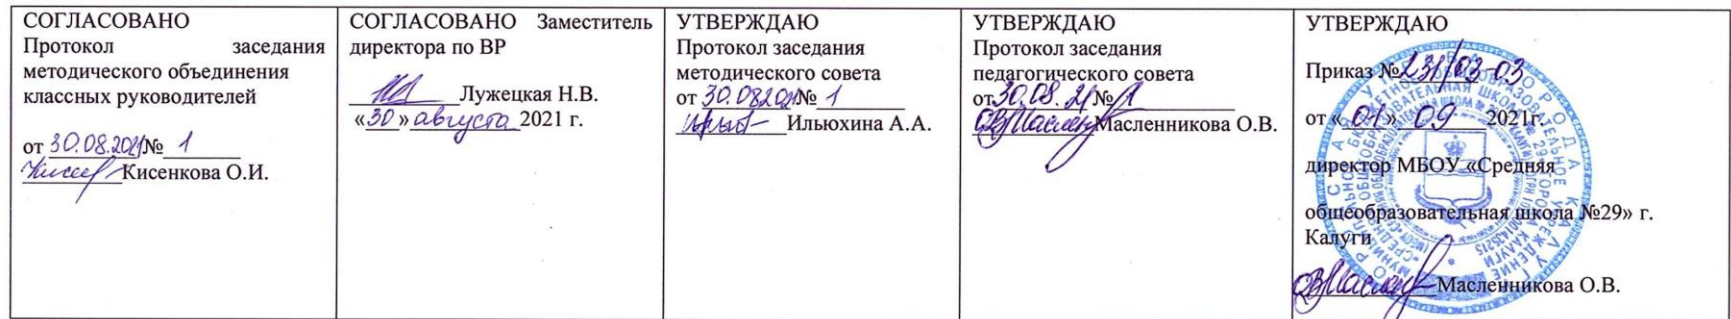 СОГЛАСОВАНО
Протокол заседания
методического объединения
классных руководителей
от 30.08.2021 № 1
Кисенкова О.И.
СОГЛАСОВАНО Заместитель
директора по ВР
Лужецкая Н.В.
«30» августа 2021 г.
УТВЕРЖДАЮ
Протокол заседания
методического совета
от 30.08.2021 № 1
Ильюхина А.А.
УТВЕРЖДАЮ
Протокол заседания
педагогического совета
от 30.08.21 № 1
Масленникова О.В.
УТВЕРЖДАЮ
Приказ № 231/03-03
от «01» 09 2021г.
директор МБОУ «Средняя
общеобразовательная школа №29» г.
Калуги
Масленникова О.В.